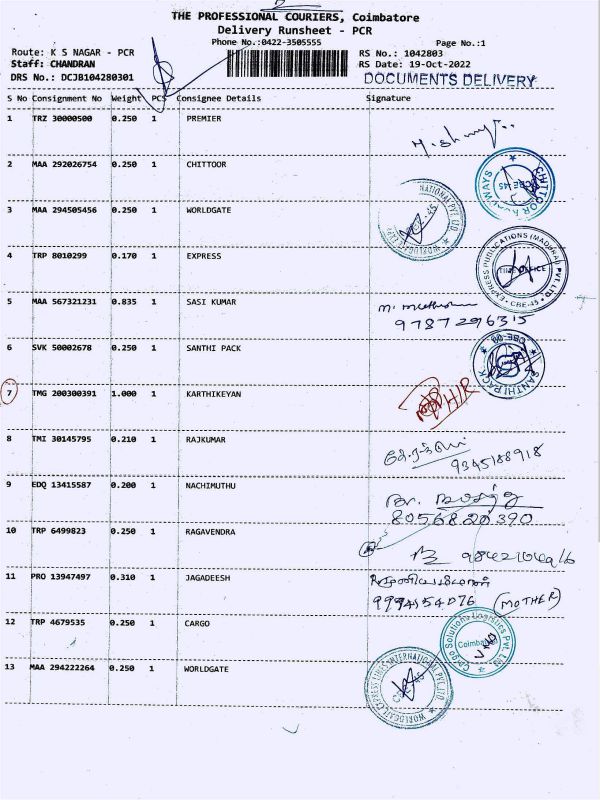 THE PROFESSIONAL COURIERS, Coimbatore
Delivery Runsheet - PCR
Phone No.:0422-3505555
Page No.:1
Route: K S NAGAR - PCR
RS No.: 1042803
Staff: CHANDRAN
RS Date: 19-Oct-2022
DRS No.: DCJB104280301
DOCUMENTS DELIVERY
S No Consignment No Weight PCS Consignee Details Signature
1 TRZ 30000500 0.250 1 PREMIER
2 MAA 292026754 0.250 1 CHITTOOR
CHITTOOR
CBE-45
3 MAA 294505456 0.250 1 WORLDGATE
NATIONAL PVT LTD
4 TRP 8010299 0.170 1 EXPRESS
EXPRESS PUBLICATIONS (MADURAI) PVT LTD
TIME OFFICE
CBE-45
5 MAA 567321231 0.835 1 SASI KUMAR
9787296315
6 SVK 50002678 0.250 1 SANTHI PACK
SANTHI PACK
7 TMG 200300391 1.000 1 KARTHIKEYAN
8 TMI 30145795 0.210 1 RAJKUMAR
9345188918
9 EDQ 13415587 0.200 1 NACHIMUTHU
8056820390
10 TRP 6499823 0.250 1 RAGAVENDRA
11 PRO 13947497 0.310 1 JAGADEESH
9994154076 (MOTHER)
12 TRP 4679535 0.250 1 CARGO
Cargo Solutions Logistics Pvt. Ltd
Coimbatore
13 MAA 294222264 0.250 1 WORLDGATE
INTERNATIONAL PVT LTD